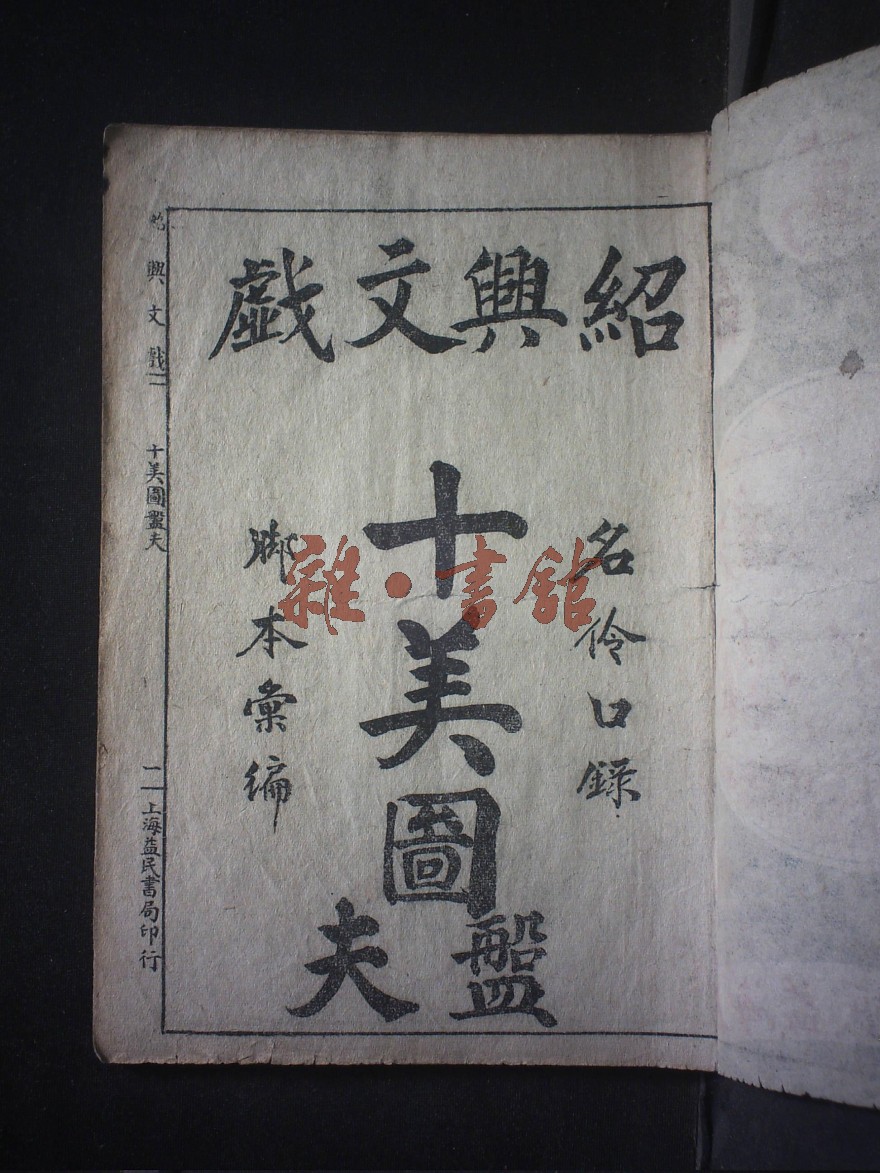 紹興文戲
名伶口錄
十美圖
盤夫
脚本彙編
雜·書舘
紹興文戲
十美圖盤夫
二
上海益民書局印行